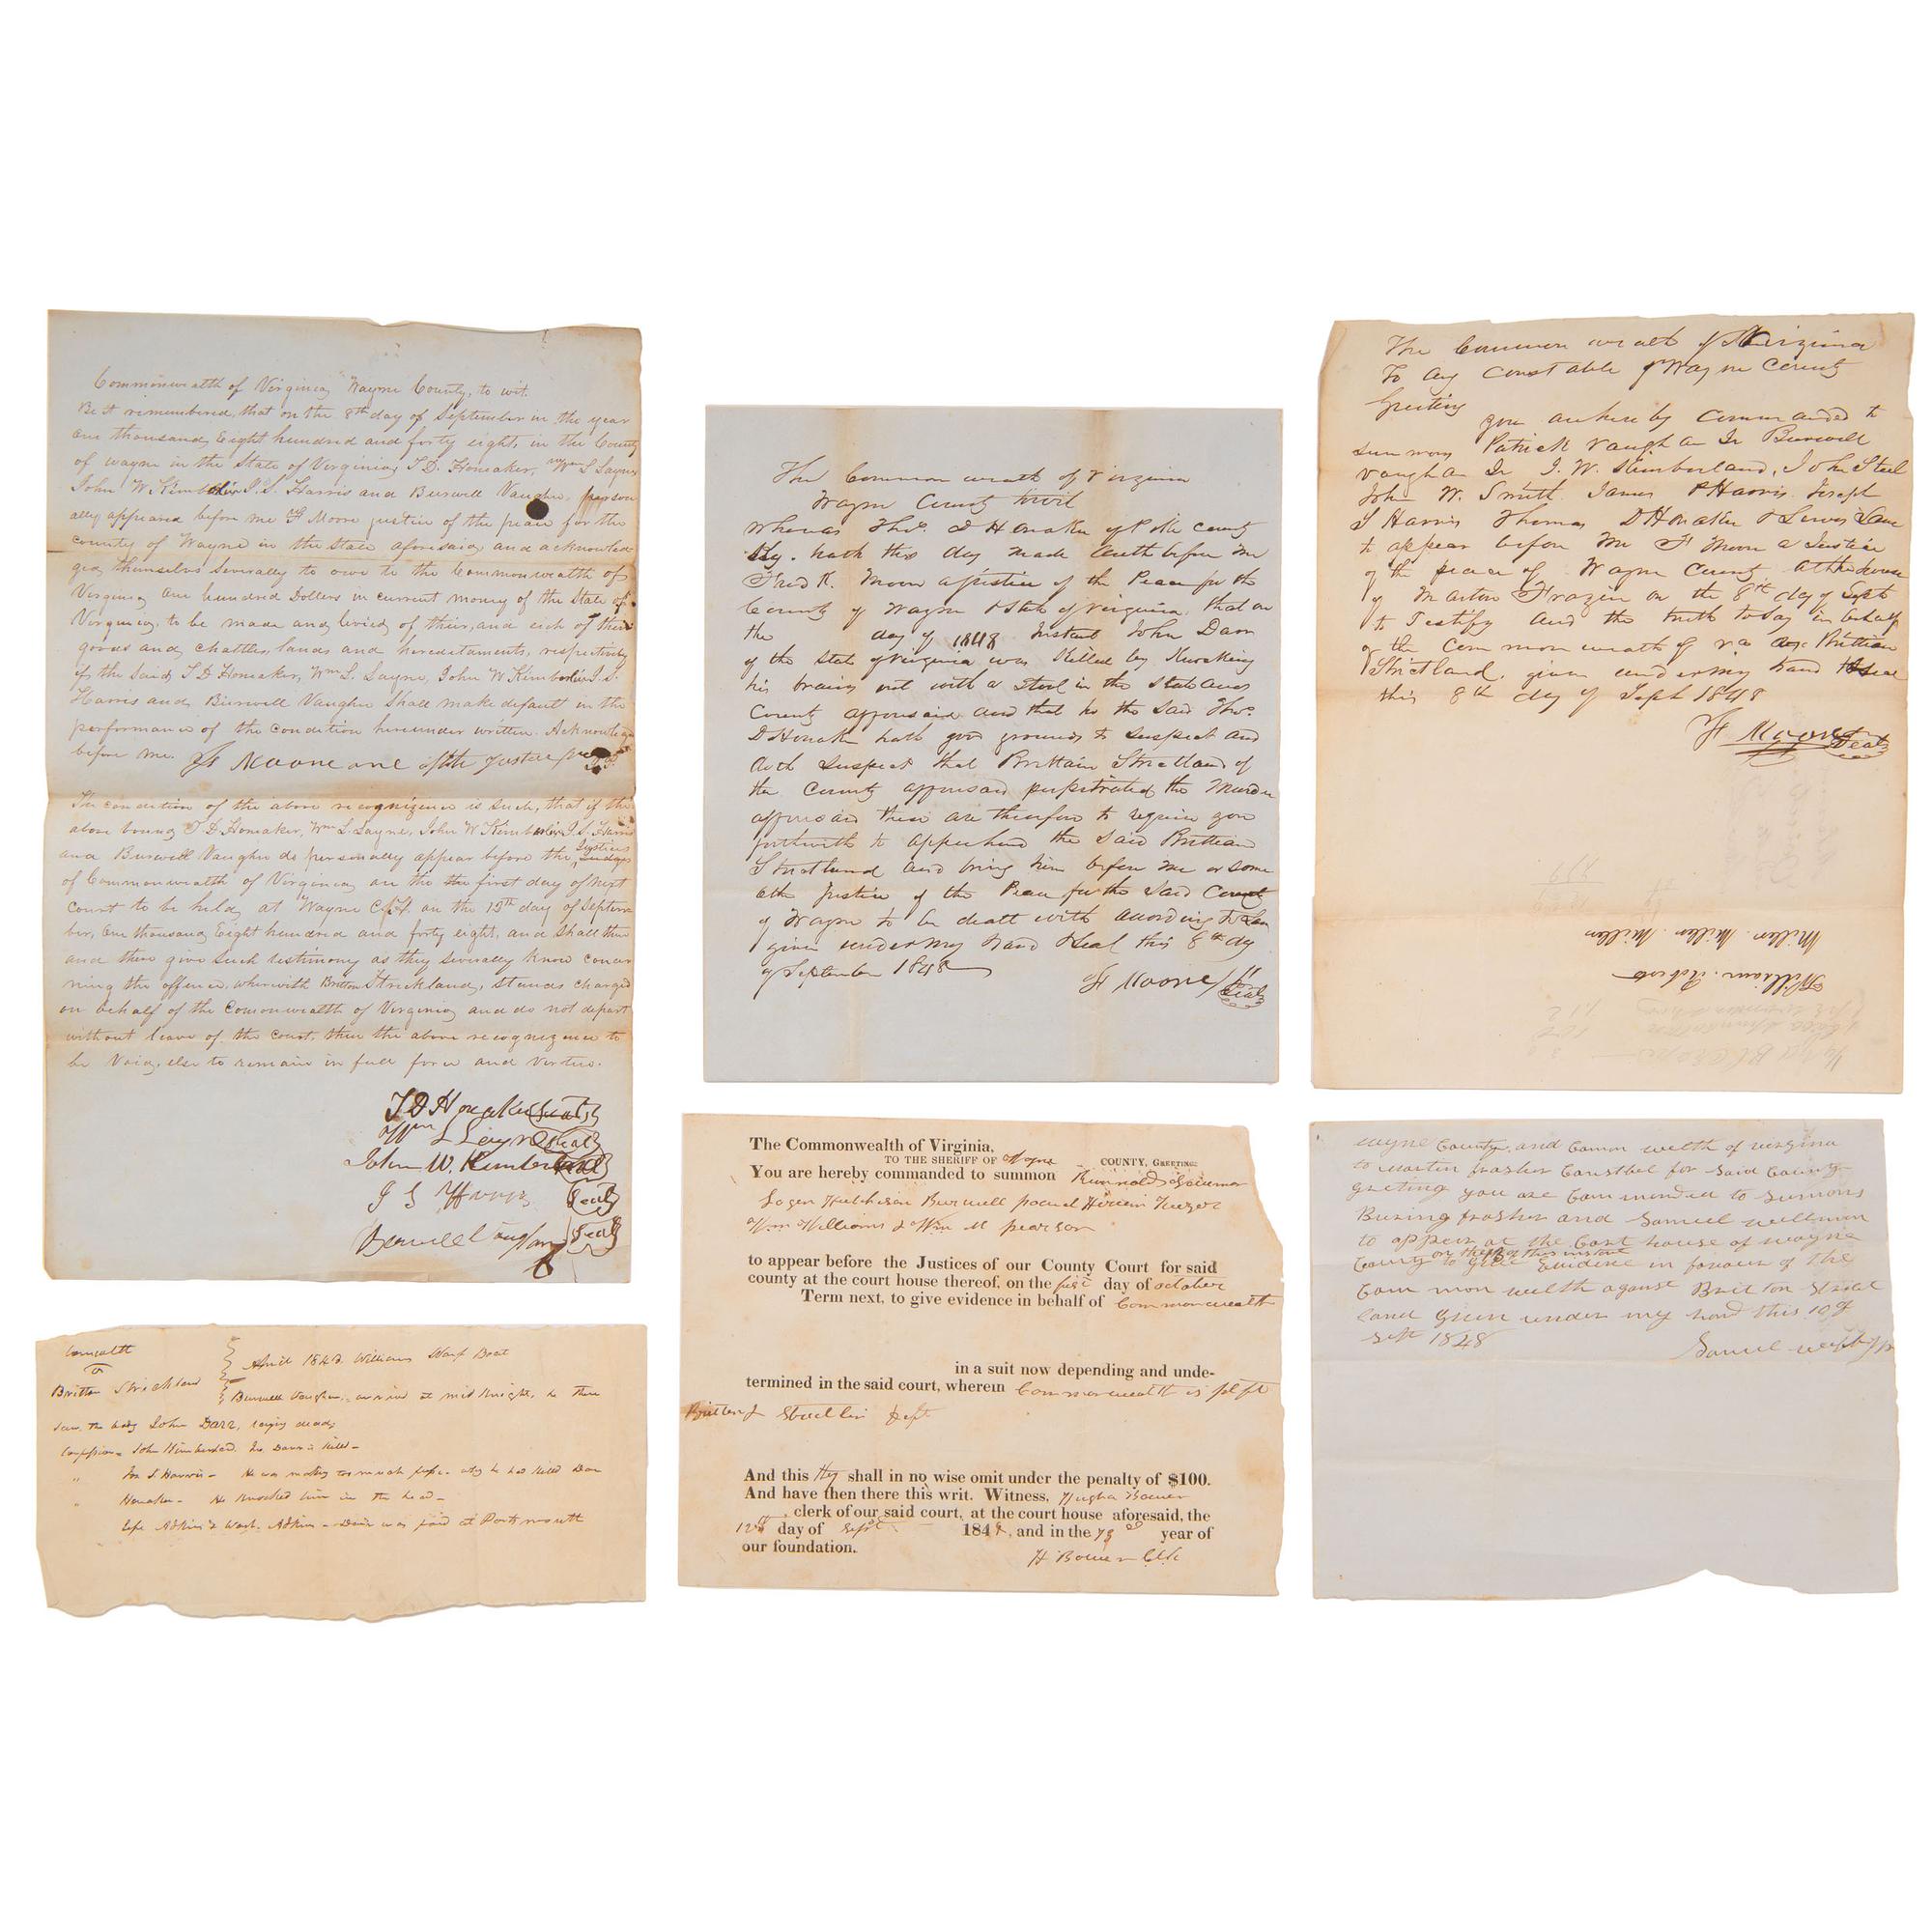 Commonwealth of Virginia Wayne County, to wit.
Be it remembered, that on the 8th day of September in the year
one thousand Eight hundred and forty eight, in the County
of wayne in the State of Virginia, T. D. Honaker, Wm L Layne
John W Kimberlin J. S. Harris and Burwell Vaughn, person
ally appeared before me F Moore justice of the peace for the
County of Wayne in the State aforesaid, and acknowled
ged themselves Severally to owe to the Commonwealth of
Virginia One hundred Dollars in current money of the State of
Virginia, to be made and levied of their, and each of their
goods and chattles, lands and hereditaments, respectively
if the Said T D Honaker, Wm L. Layne, John W Kimberlin J. S.
Harris and Burwell Vaughn Shall make defaut in the
performance of the condition hereunder written. Acknowledged
before me. F Moore one of the Justice
The condition of the above recognizence is such, that if the
above bound T D Honaker, Wm L. Layne, John W Kimberlin J. S. Harris
and Burwell Vaughn do personally appear before the Justices
of Commonwealth of Virginia on the the first day of Next
Court to be held, at Wayne C. H. on the 12th day of Septem
ber, One thousand Eight hundred and forty eight, and Shall then
and there give Such testimony as they Severally know concer
ning the offence, wherwith Britton Strickland, stands charged
on behalf of the Commonwealth of Virginia and do not depart
without leave of the court, then the above recognizence to
be Void, else to remain in full force and virtue.
T D Honaker (Seal)
Wm L Layne (Seal)
John W. Kimberland (Seal)
J S Harris (Seal)
Burwell Vaughan (Seal)
Britton Strickland
April 1848 Williams Warf Boat
Burwell Vaughn, arrived at mid Knight, he then
saw the body John Darr, laying dead,
John Kimberland.
Jos S. Harris - He was making too much fuss
Honaker - He Knocked him in the head -
Adkins & Wash. Adkins - was paid at Portsmouth
The Common wealth of Virginia
Wayne County towit
Whereas Thos. D Honaker of Pike County
Ky. hath this day made Oath before me
Fred K. Moore a justice of the Peace for the
County of Wayne & State of Virginia, that on
the day of 1848 Instant John Darr
of the State of Virginia was Killed by Knocking
his brains out with a Stool in the State and
County afforsaid and that he the Said Thos.
D Honaker hath good grounds to suspect and
doth suspect that Brittain Strickland of
the County afforsaid perpetrated the Murder
afforsaid these are therefore to require you
forthwith to apprehend the Said Brittian
Strickland and bring him before me or some
othe Justice of the Peace for the Said County
of Wayne to be dealt with according to Law
given under my hand & Seal this 8th day
of September 1848
F Moore (Seal)
The Commonwealth of Virginia,
TO THE SHERIFF OF Wayne COUNTY, GREETING:
You are hereby commanded to summon
Hutchison Burwell
Wm Williams & Wm M pearson
to appear before the Justices of our County Court for said
county at the court house thereof, on the first day of october
Term next, to give evidence in behalf of Commonwealth
in a suit now depending and unde-
termined in the said court, wherein Commonwealth is plft
deft
And this they shall in no wise omit under the penalty of $100.
And have then there this writ. Witness, Hugh Bowen
clerk of our said court, at the court house aforesaid, the
12th day of Sept 1848, and in the 73d year of
our foundation.
H Bowen Clk
The Common wealth of Virginia
To any constable of Wayne County
Greeting
you are here by Commanded to
summons Patrick Vaughan Jr Burwell
Vaughan Jr J. W. Kimberland, John Steel
John W. Smith James P Harris Joseph
S Harris Thomas D Honaker & Lewis Lane
to appear before me F Moore a Justice
of the peace of Wayne County at the house
of Martin Frazier on the 8th day of Sept
to Testify and the truth to Say in behalf
of the Common wealth of va agt Brittian
Strickland, given under my hand & Seal
this 8th day of Sept 1848
F Moore (Seal)
Miller. Miller. Miller
William. Roberts
Wayne County, and Common welth of virginia
to martin frasher Constbel for Said County
greting you are Commended to Sumons
frasher and Samuel wellman
to appear at the Cort house of wayne
on the 12 of this instant
County to give Evidence in favour of the
Common welth against Britton Strick
land given under my hand this 10 of
Sept 1848
Samuel